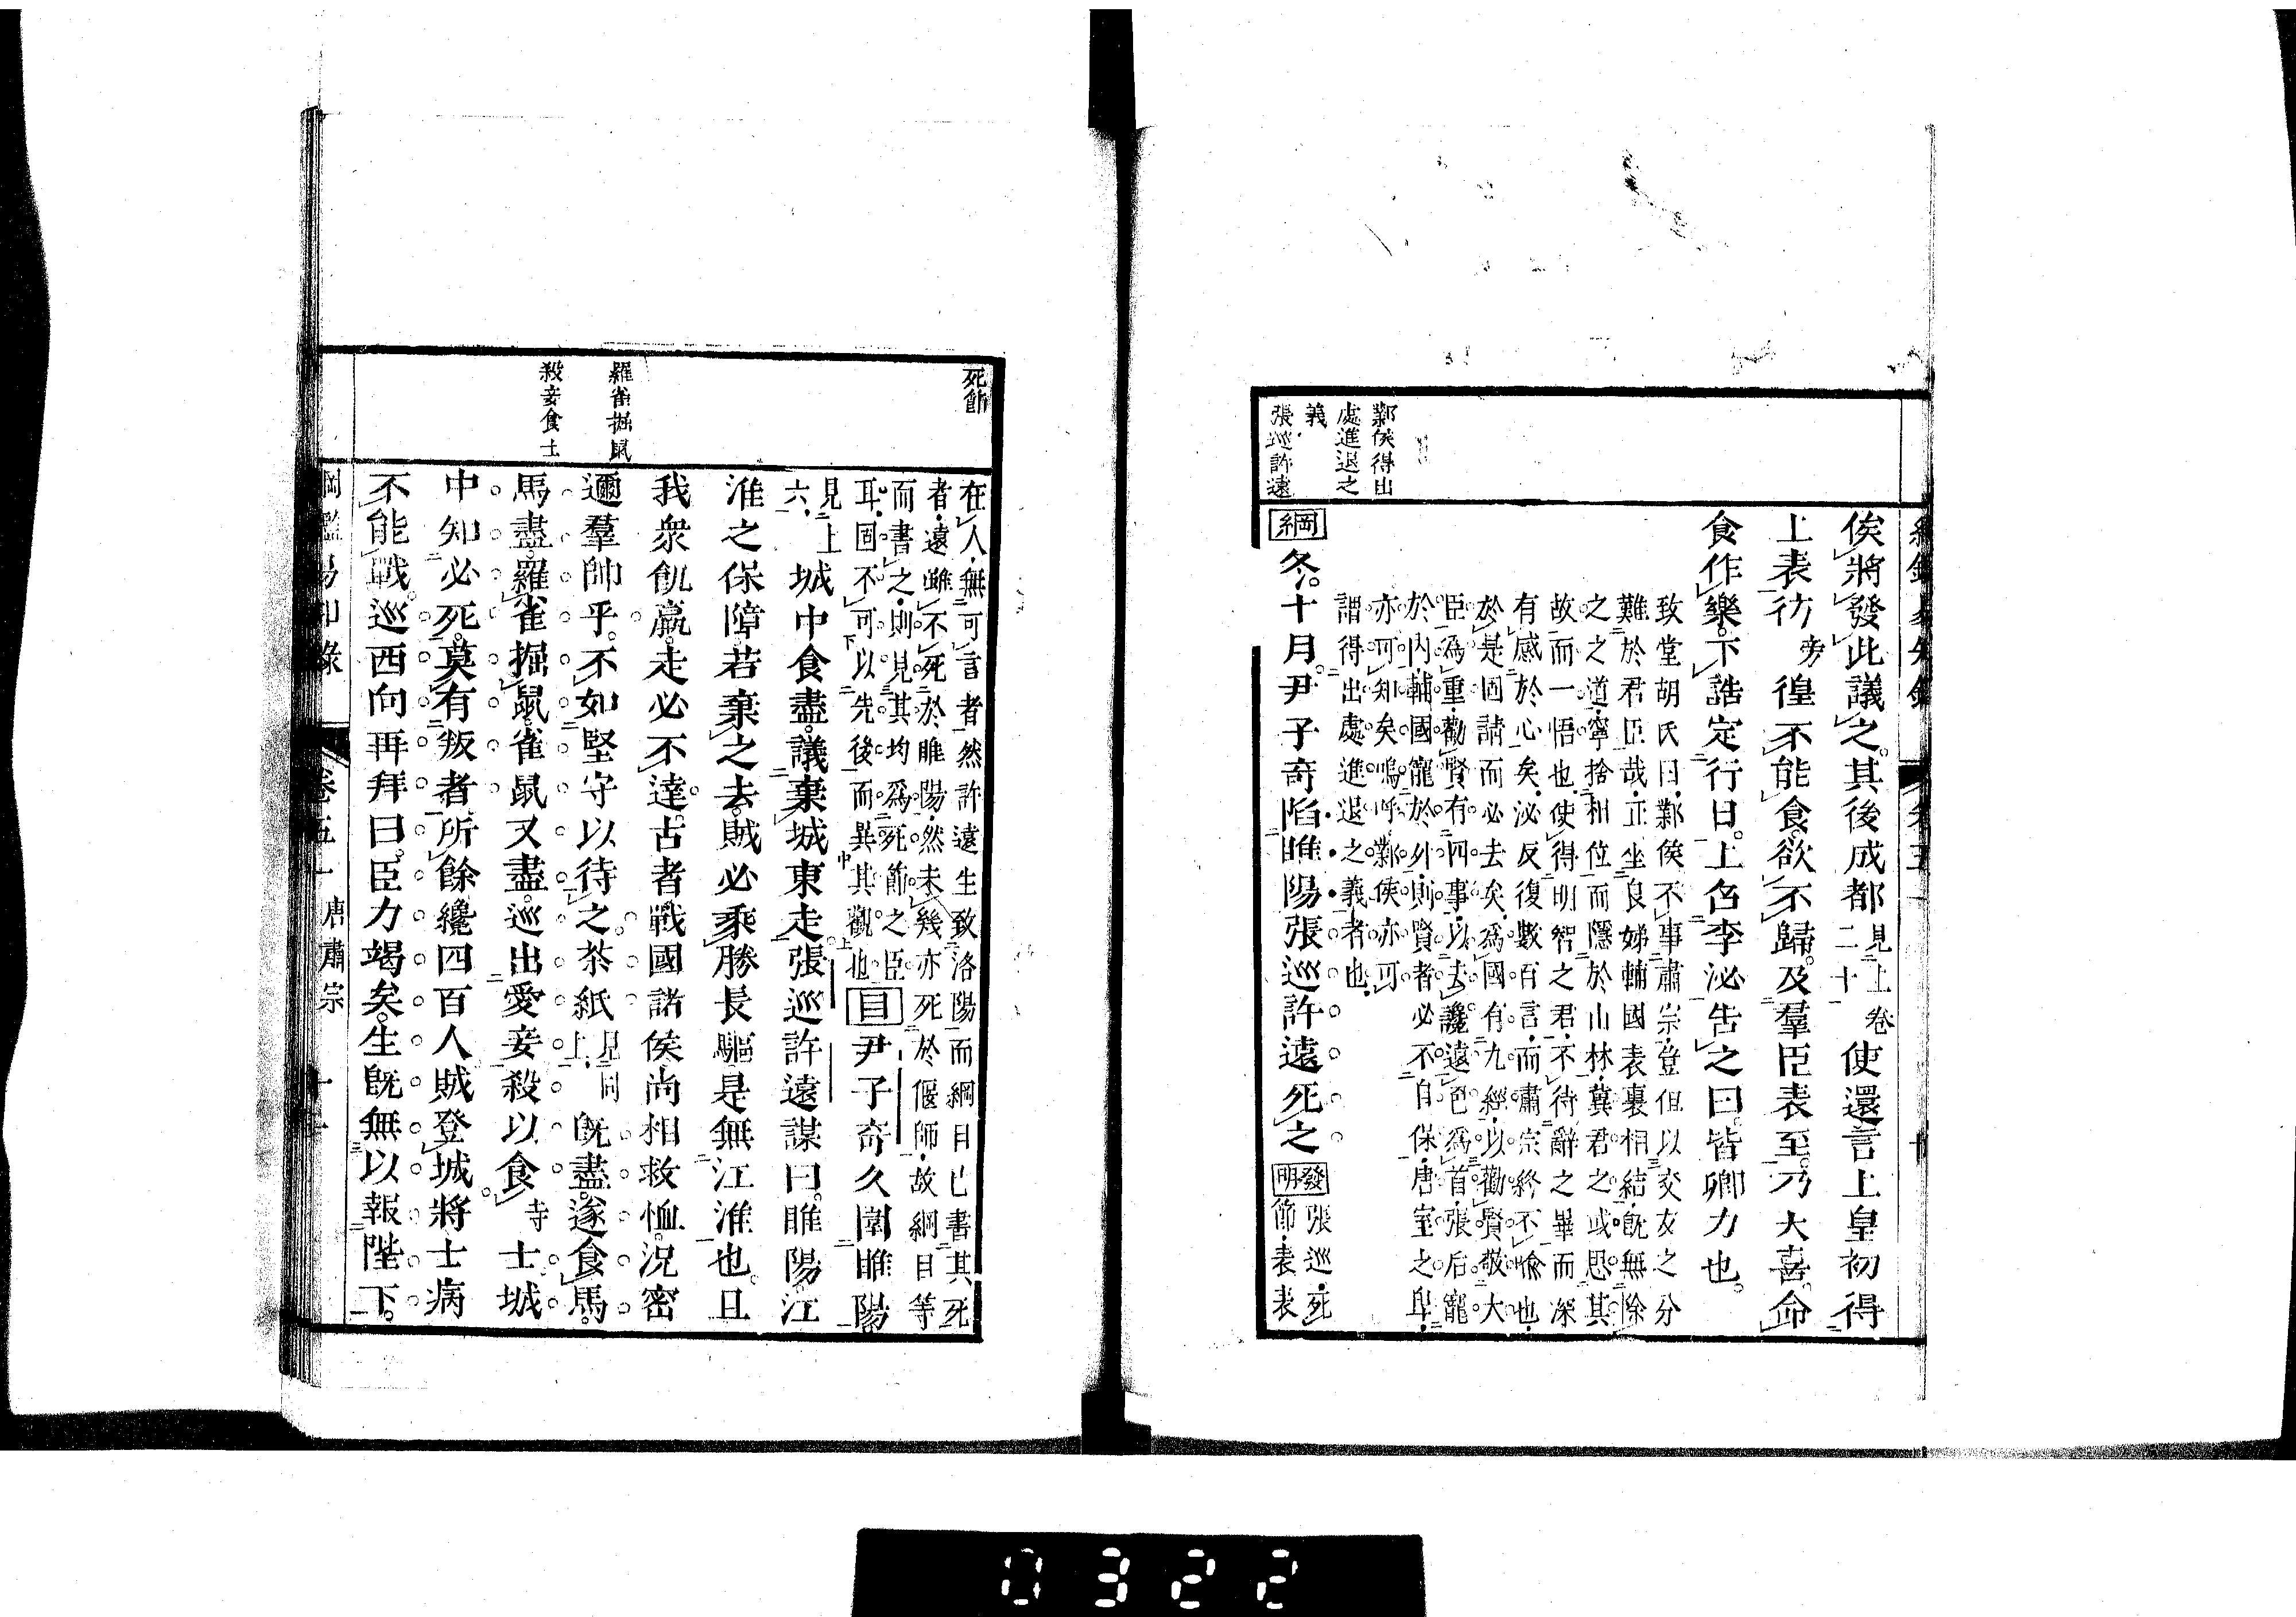 俟將發此議之。其後成都見上卷二十使還言上皇初得
上表彷旁徨不能食。欲不歸。及羣臣表至。乃大喜。命
食作樂。下誥定行日。上召李泌告之曰。皆卿力也。
致堂胡氏曰。鄴侯不事肅宗。登但以交友之分
難於君臣哉。正坐良娣輔國表裏相結。旣無除
之之道。寧捨相位而隱於山林。冀君之或思其
故而一悟也。使得明智之君。不待辭之畢而深
有感於心矣。泌反復數百言。而肅宗終不喩也。
於是固請而必去矣。爲國有九經。以勸賢敬大
臣爲重。勸賢有四事。以去讒遠色爲首。張后寵
於內。輔國寵於外。則賢者必不自保。唐室之卑。
亦可知矣。嗚呼。鄴侯亦可
謂得出處進退之義者也。
綱 冬。十月。尹子奇陷睢陽。張巡許遠死之 發明 張巡死節。表表
鄴侯得出
處進退之
義
張巡許遠
死節
在人。無可言者。然許遠生致洛陽。而綱目已書其死
者。遠雖不死於睢陽。然未幾亦死於偃師。故綱目等
而書之。則見其均爲死節之臣
耳。固不可以先後而異其觀也。目 尹子奇久圍睢陽
見上六。城中食盡。議棄城東走。張巡許遠謀曰。睢陽江
淮之保障。若棄之去。賊必乘勝長驅。是無江淮也。且
我衆飢羸。走必不達。古者戰國諸侯。尚相救恤。況密
邇羣帥乎。不如堅守以待之。茶紙見同上。旣盡。遂食馬。
馬盡。羅雀掘鼠。雀鼠又盡。巡出愛妾。殺以食寺士。城
中知必死。莫有叛者。所餘纔四百人。賊登城。將士病
不能戰。巡西向再拜曰。臣力竭矣。生旣無以報陛下。
羅雀掘鼠
殺妾食士
綱鑑易知錄 卷五十一 唐肅宗
0322